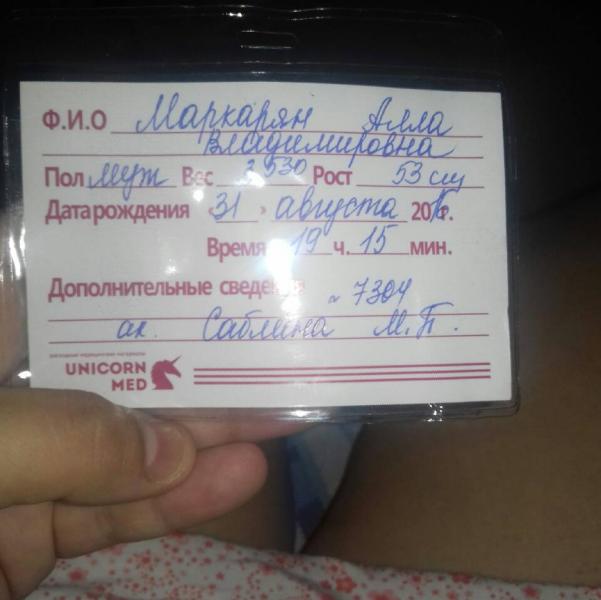 Ф.И.О Маркарян Алла
Владимировна
Пол муж Вес 3 530 Рост 53 см
Дата рождения «31» августа 2016г.
Время 19 ч. 15 мин.
Дополнительные сведения № 7304
ак. Саблина М.П.
расходные медицинские материалы
UNICORN
MED